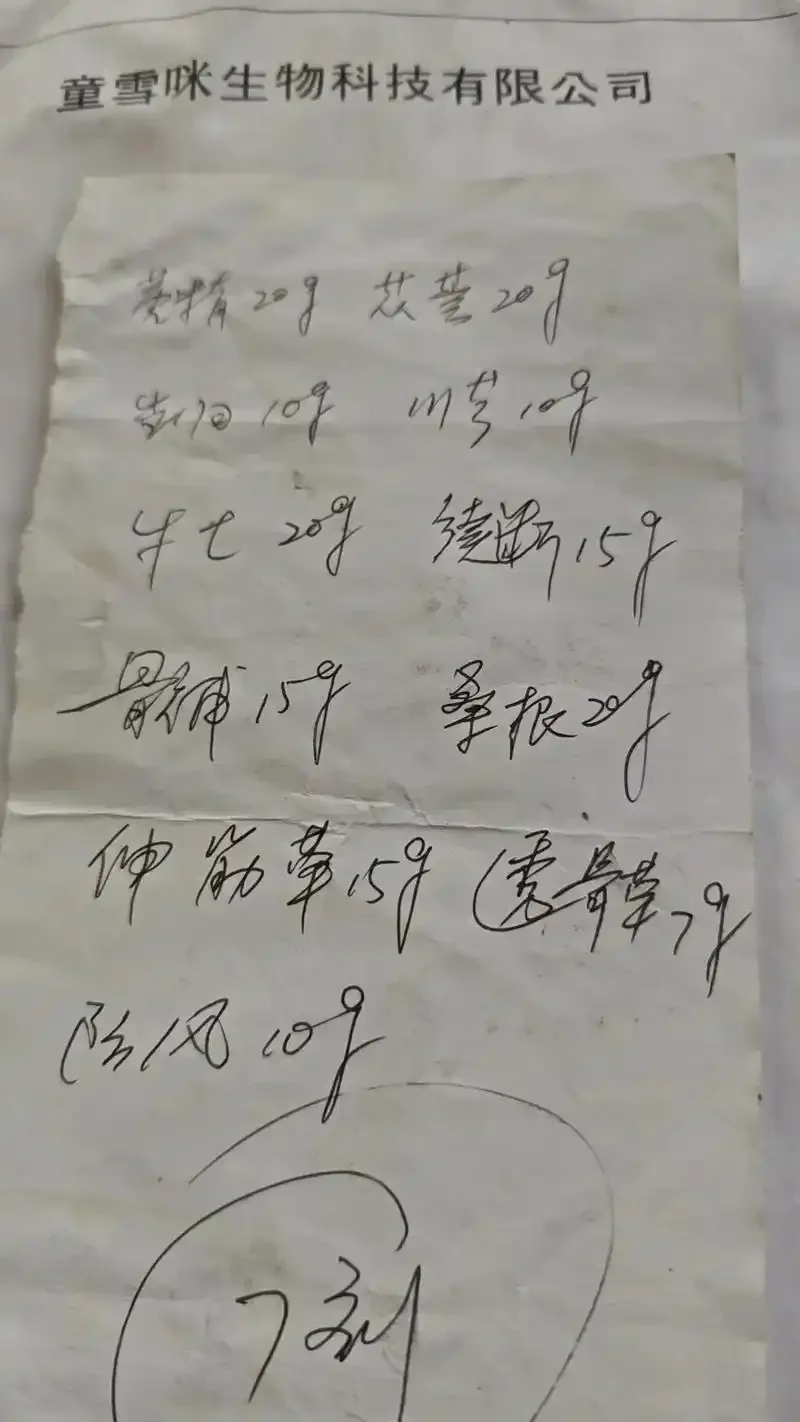 童雪咪生物科技有限公司
黄精20g 芡芸20g
当归10g 川芎10g
牛七20g 续断15g
骨补15g 桑根20g
伸筋草15g 透骨草7g
防风10g
7剂